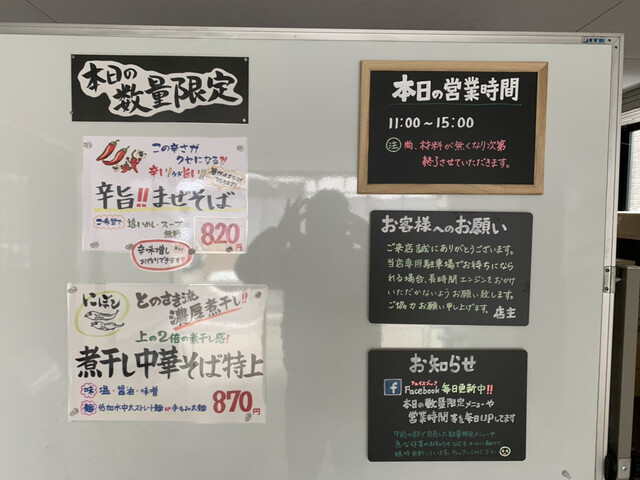 本日の
数量限定
この辛さが
クセになる!!
辛いッが旨い!!
辛旨!!まぜそば
ご希望で 追いめし・スープ
無料
820円
辛味増し
お作りできます!!
にぼし
とのさま流
濃厚煮干し!!
上の2倍の煮干し感!
煮干し中華そば特上
味 塩・醤油・味噌
麺 低加水中太ストレート麺 or 手もみ太麺
870円
本日の営業時間
11:00～15:00
注 尚、材料が無くなり次第
終了させていただきます。
お客様へのお願い
ご来店誠にありがとうございます。
当店専用駐車場でお待ちになら
れる場合、長時間エンジンをおかけ
いただかないようお願い致します。
ご協力お願い申し上げます。
店主
お知らせ
フェイスブック
f Facebook 毎日更新中!!
本日の数量限定メニューや
営業時間 等を毎日UPしてます